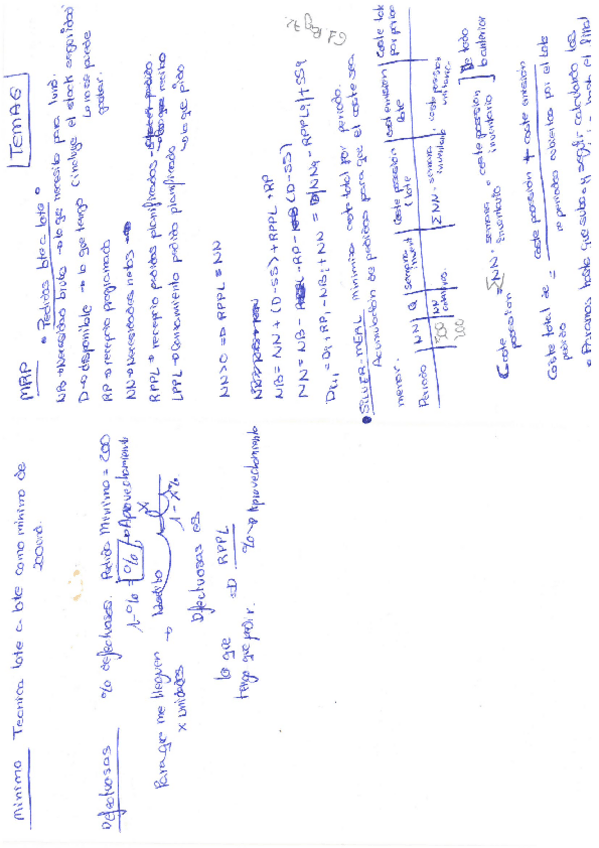 MRP TEMA 6
• Pedidos lote a lote •
NB → Necesidades brutas → lo que necesito para 1 und.
D → disponible → lo que tengo (incluye el stock seguridad)
Lo no se puede gastar.
RP → recepto programado
NN → Necesidades netas
RPPL → recepcio pedidos planificados → lo que recibo
LPPL → Lanzamiento pedido planificado → lo que pido
NN>0 => RPPL = NN
NB = NN + (D-SS) + RPPL + RP
NN = NB - RP - (D-SS)
• SILVER-MEAL minimiza coste total por periodo.
Acumulación de pedidos para que el coste sea
menor.
Periodo | NN | Q | semanas invent | Coste posesión lote | Cost emisión lote | Coste lote por periodo
500 | NN
200
ΣNN · semanas inventario · coste posesión unitario
De todo lo anterior
Coste posesion = ΣNN · semanas inventario · coste posesión unitario
Coste total de pedido = coste posesión + coste emisión
nº periodos cubiertos por el lote
• Paramos hasta que suba y seguir calculando los
Minimo Tecnica lote a lote como minimo de
200 und.
Defectuosas % defectuosas. Pedido Minimo = 200
1-% = % → Aprovechamiento
Para que me lleguen → Necesito
x unidades
x
1-x%
Defectuosas es
lo que => RPPL
tengo que pedir. % → Aprovechamiento